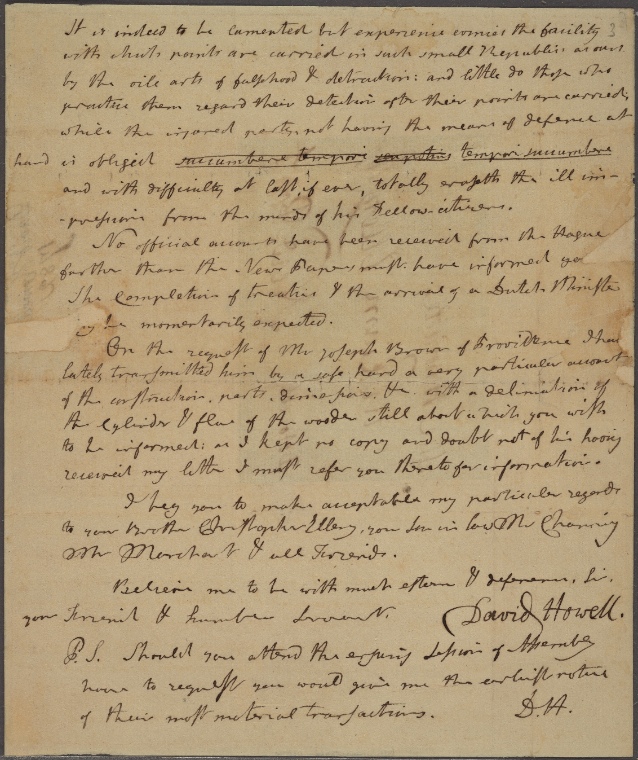 It is indeed to be lamented but experience evinces the facility 3
with which points are carried in such small Republics as ours
by the vile arts of falsehood & detraction: and little do those who
practise them regard their detection after their points are carried,
while the injured party, not having the means of defence at
hand is obliged succumbere tempori tempori succumbere
and with difficulty at last, if ever, totally eraseth the ill im-
-pressions from the minds of his Fellow-citizens.
No official accounts have been received from the Hague
further than the News Papers must have informed you
The completion of treaties & the arrival of a Dutch Minister
may be momentarily expected.
On the request of Mr Joseph Brown of Providence I had
lately transmitted him by a safe hand a very particular account
of the construction, parts, dimensions, &c. with a delineation of
the Cylinder & flue of the wooden still about which you wish
to be informed: as I kept no copy and doubt not of his having
received my letter I must refer you thereto for information.
I beg you to make acceptable my particular regards
to your Brother Christopher Ellery, your Son in law Mr Channing
Mr Marchant & all Friends.
Believe me to be with much esteem & deference, Sir,
your Friend & humble Servant.
David Howell.
P.S. Should you attend the ensuing session of Assembly
have to request you would give me the earliest notice
of their most material transactions. D.H.